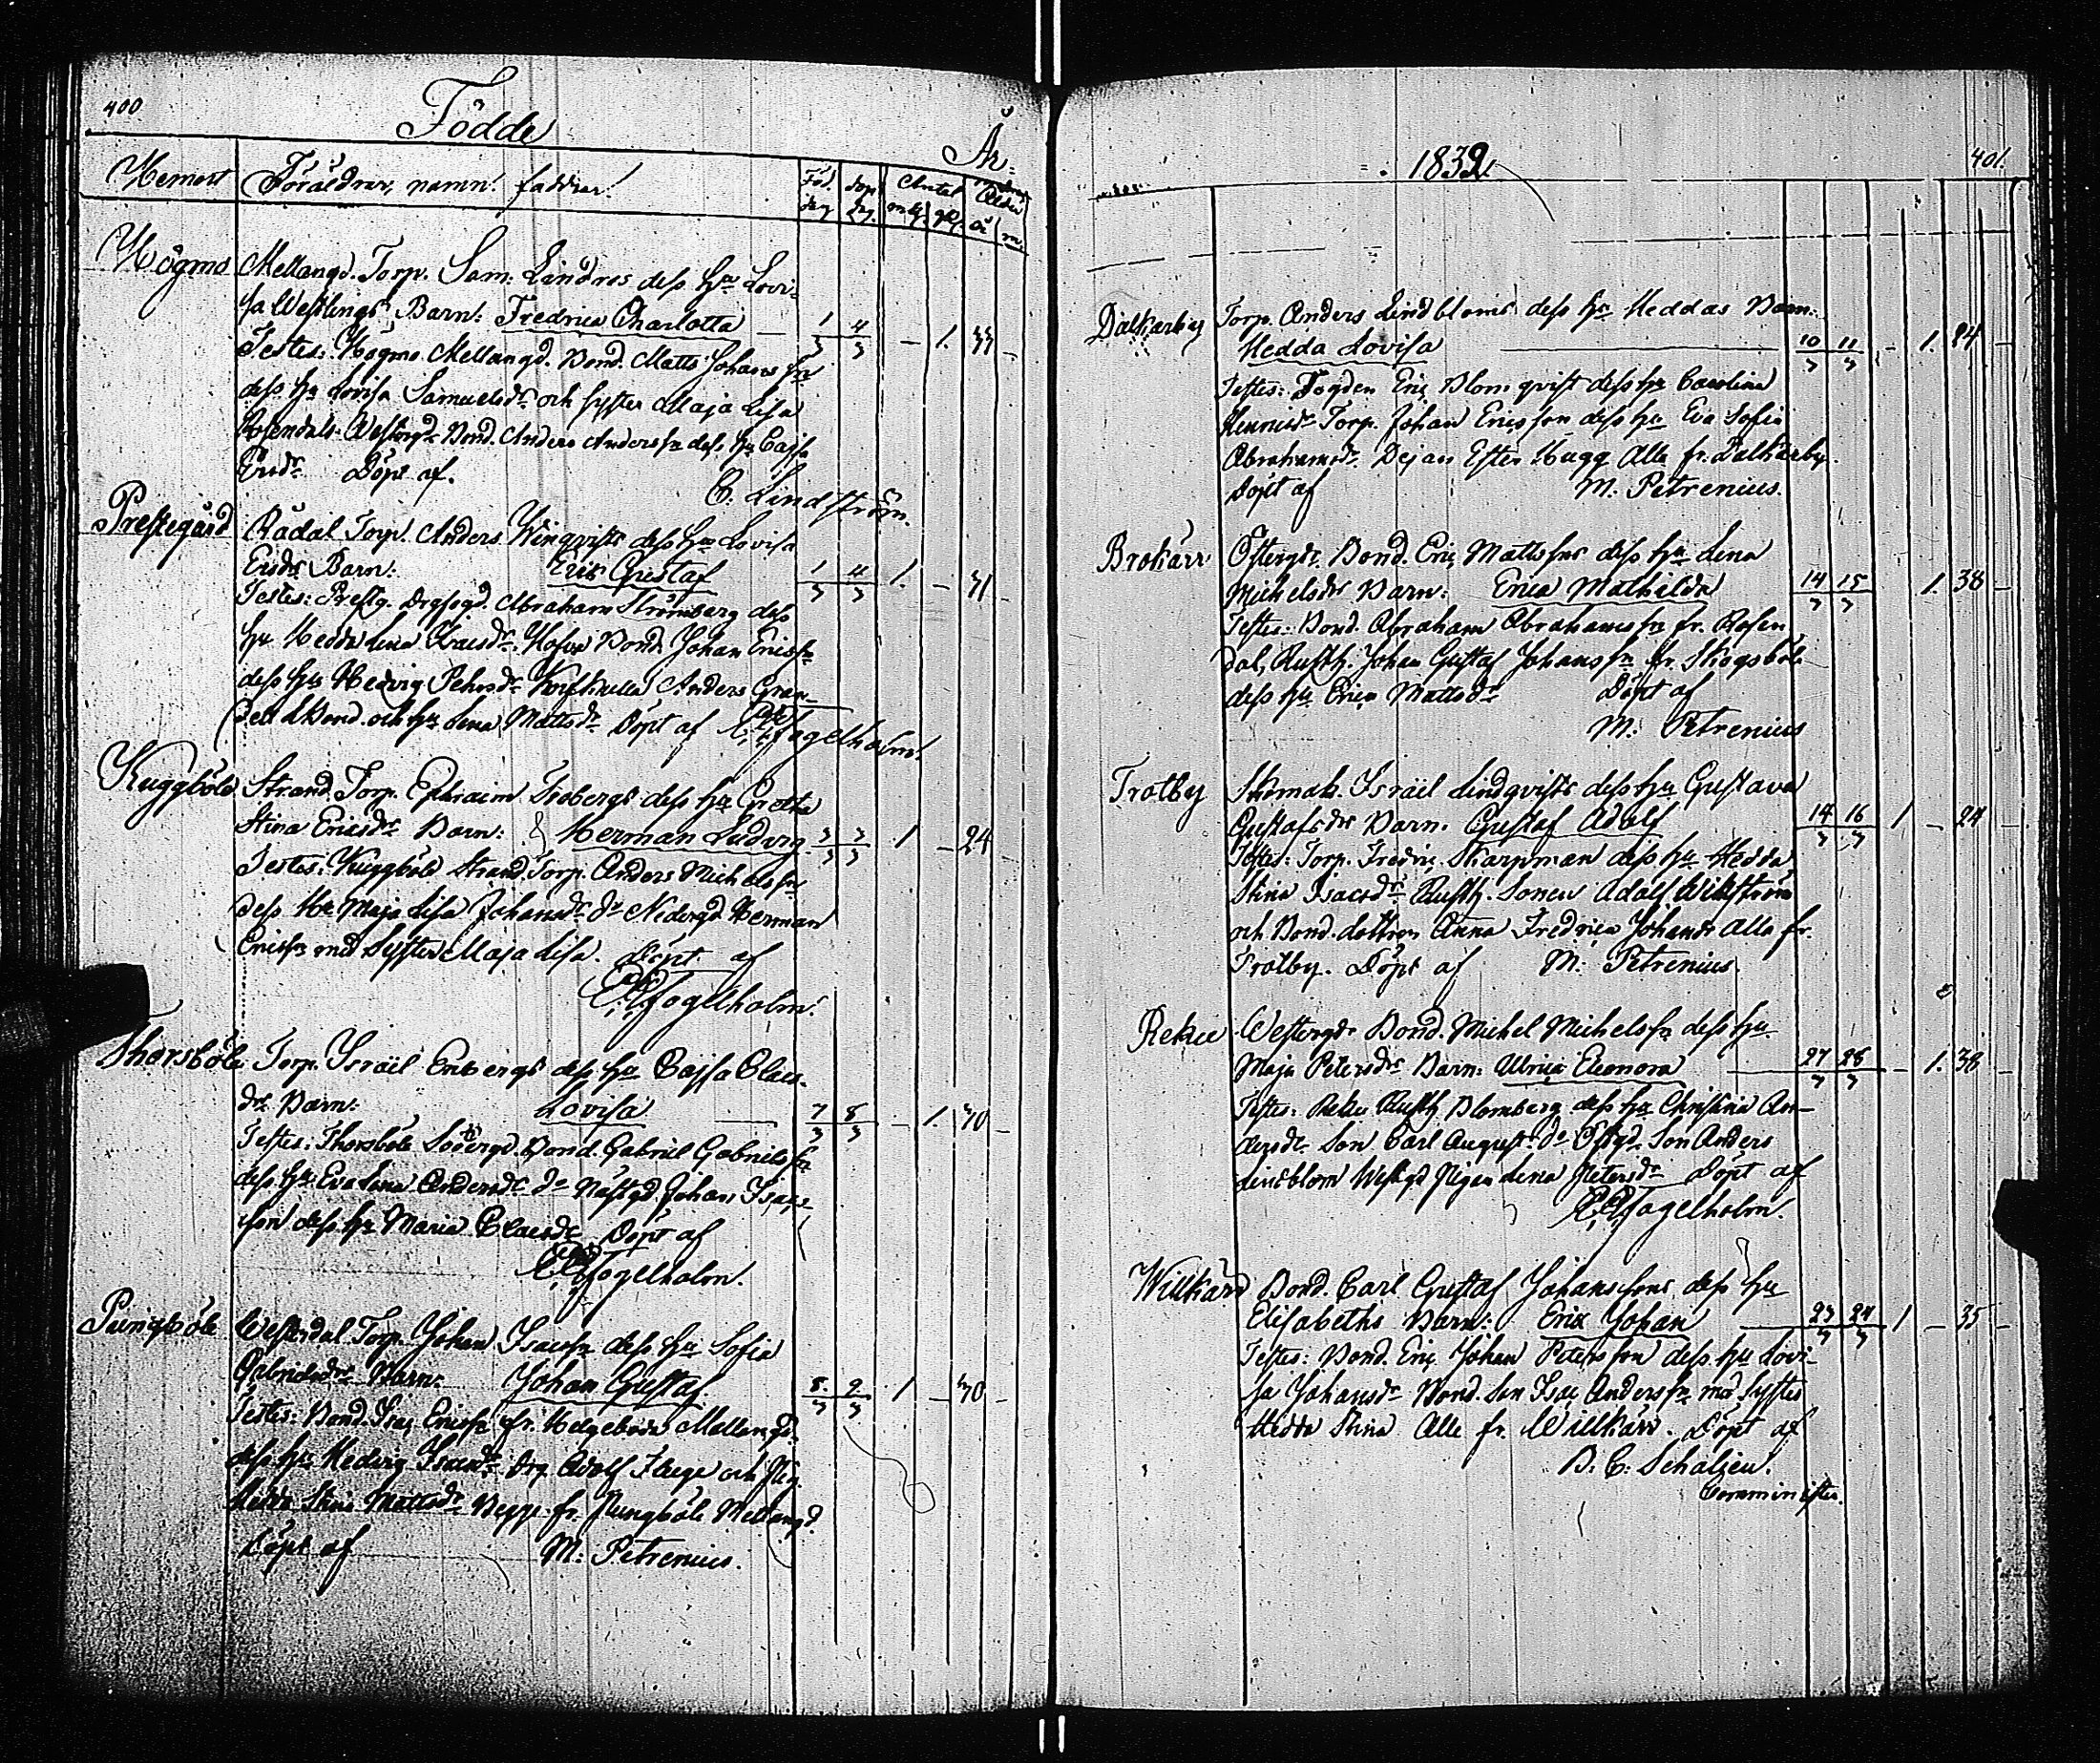 400
Födde
År
Hemort Föräldrar, namn. faddrar.
Föd. dag Döp. dag. Antal mk. qk. Ålder år m.
Högmo Mellangd. Torp. Sam: Lindros dess hu Lovi-
sa Westlings Barn: Fredrica Charlotta 1/3 4/3 - 1. 33 -
Testes: Högmo Mellangd. Bond. Matts Johans sn
dess hu Lovisa Samuelsdr och syster Maja Lisa
Rosendals Westergd Bond. Anders Anderssn dess hu Cajsa
Ersdr Döpt af.
C. Lindström.
Prestegård Rådal Torp. Anders Winqvists dess hu Lovisa
Ersdrs Barn: Erik Gustaf 1/3 4/3 1. - 31 -
Testes: Prestg. Abraham Strömberg dess
hu Hedda Lena Bond Johan Ericssn
dess hu Hedvig Pehrsdr Anders Gran-
Bond. och hu Lena Mattsdr Döpt af Fogelholm.
Kuggböle Strand Torp. Ephraim Isebergs dess hu Gretha
Stina Ericsdr Barn: Herman Ludvig 3/3 3/3 1 - 24
Testes: Kuggböle Strand Torp. Anders Michelssn
dess hu Maja Lisa Johansdr do Nedergd Herman
Ericssn med Syster Maja Lisa. Döpt af
Fogelholm.
Thorsböle Torp. Israël Enbergs dess hu Cajsa Claes-
drs Barn: Lovisa 7/3 8/3 - 1. 30 -
Testes: Thorsböle Södergd. Bond. Gabriel Gabrielssn
dess hu Eva Lena Andersdr do Nästgd. Johan Isacs-
son dess hu Maria Claesdr Döpt af
Fogelholm.
Pungböle Westerdal Torp. Johan Isacssn dess hu Sofia
Gabrielsdrs Barn: Johan Gustaf. 8/3 9/3 1 - 30 -
Testes: Bond. Isac Ericssn fr. Helgeboda Mellangd.
dess hu Hedvig Isacsdr Drg Adolf och Pig.
Hedda Stina Mattsdr Begge fr. Pungböle Mellangd.
Döpt af M: Petrenius.
1832.
401.
Dalkarby Torp. Anders Lindbloms dess hu Heddas Barn:
Hedda Lovisa 10/3 11/3 - 1. 24 -
Testes: Fogden Eric Blomqvist dess hu Carolina
Henricsdr Torp. Johan Ericsson dess hu Eva Sofia
Abrahamsdr. Dejan Ester Hugg Alla fr. Dalkarby.
Döpt af M: Petrenius.
Brokärr Östergds. Bond. Eric Mattssns dess hu Lena
Michelsdrs Barn: Erica Mathilda 14/3 15/3 1. 38 -
Testes: Bond. Abraham Abrahamssn fr. Rosen
dal, Rusth. Johan Gustaf Johanssn fr. Skogsböle
dess hu Erica Mattsdr Döpt af
M: Petrenius
Trotby Skomak. Israël Lindqvists dess hu Gustava
Gustafsdrs Barn. Gustaf Adolf 14/3 16/3 1 - 24 -
Testes: Torp. Fredric Skarpman dess hu Hedda
Stina Isacsdr Rusth. Sonen Adolf Wikström
och Bond. dottren Anna Fredrica Johansdr Alla fr.
Trotby. Döpt af M: Petrenius.
Rekue Westergds Bond. Michel Michelssn dess hu
Maja Petersdrs Barn: Ulrica Eleonora 27/3 28/3 - 1. 38 -
Testes: Rekue Rusth Blomberg dess hu Christina An-
dersdr Son Carl August do Östgd. Son Anders
Lindblom Westgd Pigan Lena Petersdr Döpt af
Fogelholm.
Willkärr Bond. Carl Gustaf Johanssons dess hu
Elisabeths Barn: Eric Johan 23/3 24/3 1 - 35 -
Testes: Bond. Eric Johan Petersson dess hu Lovi-
sa Johansdr Bond. Son Isac Anderssn med Syster
Hedda Stina Alle fr. Willkärr. Döpt af
B. C: Schalien.
Comminister.